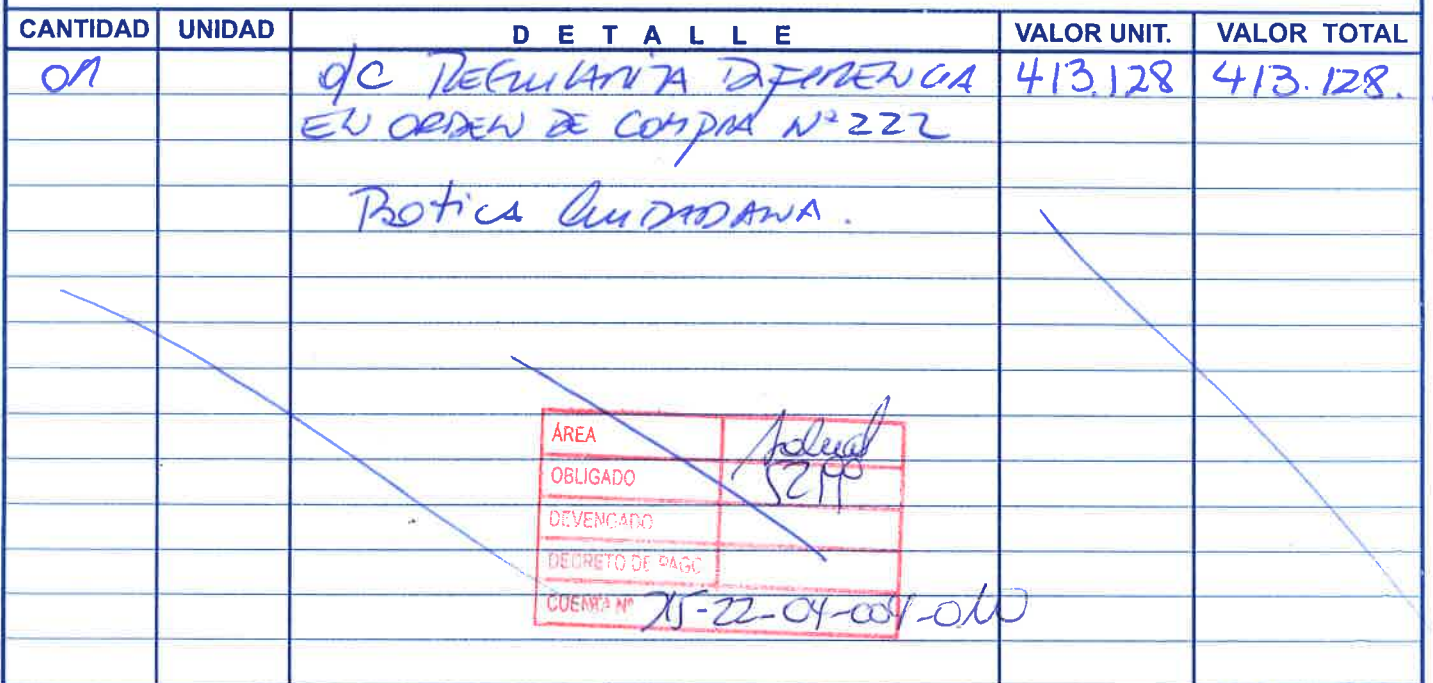 CANTIDAD UNIDAD DETALLE VALOR UNIT. VALOR TOTAL
01 O/C REGULARIZA DIFERENCIA 413.128 413.128.
EN ORDEN DE COMPRA N° 222
BOTICA CIUDADANA.
ÁREA Salud
OBLIGADO
DEVENGADO
DECRETO DE PAGO
CUENTA Nº 215-22-04-004-010